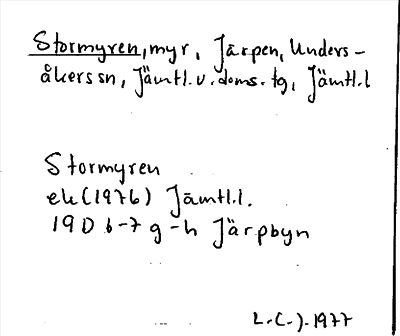 Stormyren, myr, Järpen, Unders-
åkers sn, Jämtl. v. doms. tg, Jämtl. l
Stormyren
ek (1976) Jämtl. l.
19D 6-7 g-h Järpbyn
L.(-).1977